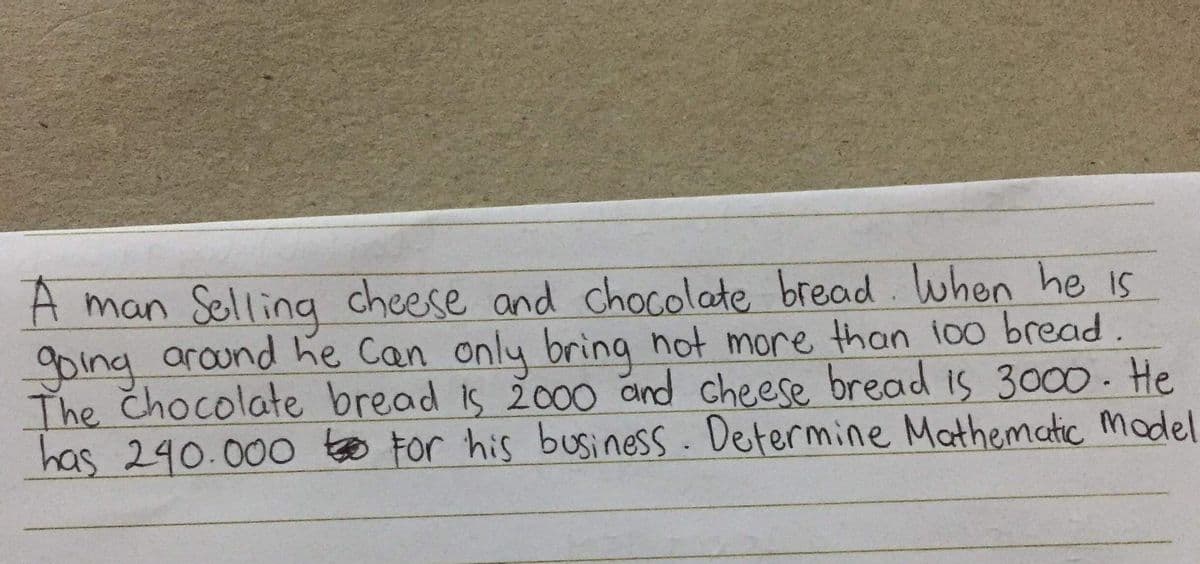 A man Selling cheese and chocolate bread. When he is
going around he can only bring not more than 100 bread.
The chocolate bread is 2000 and cheese bread is 3000. He
has 240.000 for his business. Determine Mathematic Model